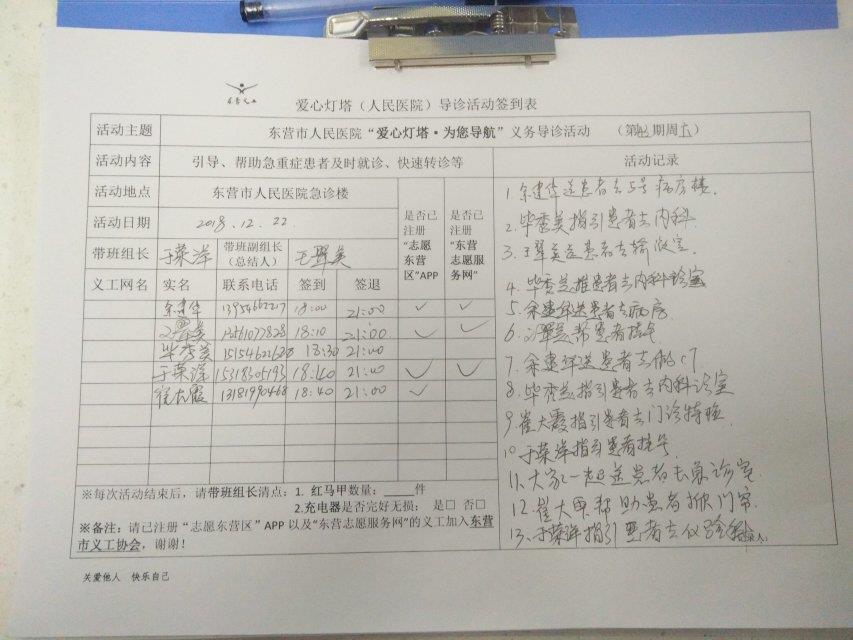 爱心灯塔（人民医院）导诊活动签到表
活动主题 东营市人民医院“爱心灯塔·为您导航”义务导诊活动 （第 期周六）
活动内容 引导、帮助急重症患者及时就诊、快速转诊等 活动记录
活动地点 东营市人民医院急诊楼
是否已注册“志愿东营区”APP
是否已注册“东营志愿服务网”
活动日期 2018.12.22
带班组长 于荣洋 带班副组长（总结人）
义工网名 实名 联系电话 签到 签退
余建华 13954662217 18:00 21:00 ✓ ✓
18:10 21:00 ✓ ✓
毕秀美 18:30 21:00
于荣洋 15318305193 18:40 21:00 ✓ ✓
崔大霞 13181990468 18:40 21:00 ✓
1.余建华送患者去5号病房楼.
2.毕秀美指引患者去内科
3. 送患者去输液室.
4.毕秀美推患者去内科诊室
5.余建华送患者去病房
6. 帮患者挂号
7.余建华送患者去做CT
8.毕秀美指引患者去内科诊室
9.崔大霞指引患者去门诊特检
10.于荣洋指引患者挂号
11.大家一起送患者去急诊室
12.崔大霞帮助患者掀门帘.
13.于荣洋指引患者去
※每次活动结束后，请带班组长清点：1. 红马甲数量：_____件
2.充电器是否完好无损： 是□ 否□
※备注：请已注册“志愿东营区”APP 以及“东营志愿服务网”的义工加入东营
市义工协会，谢谢！
关爱他人 快乐自己